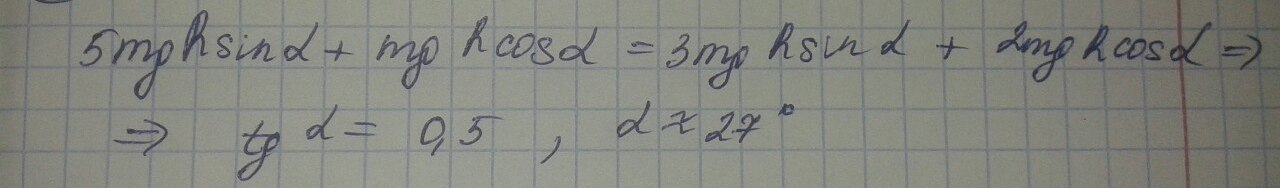 5mgRsinα + mgRcosα = 3mgRsinα + 2mgRcosα ⇒
⇒ tg α = 0,5 , α ≈ 27°